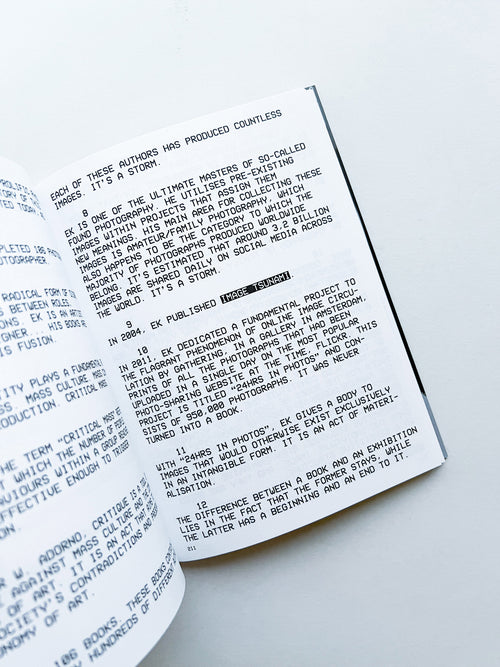 106
RADICAL FORM OF
BETWEEN ROLES.
EK IS AN
HIS BOOKS
FUSION.
PLAYS A
MASS CULTURE
CRITICAL
TERM "CRITICAL
WHICH THE NUMBER OF
WITHIN A GROUP
EFFECTIVE ENOUGH TO
W. ADORNO, CRITIQUE IS
AGAINST MASS CULTURE AND
OF ART. IT IS AN ACT
SOCIETY'S CONTRADICTIONS AND
OF ART.
106 BOOKS. THESE BOOKS
HUNDREDS OF
EACH OF THESE AUTHORS HAS PRODUCED COUNTLESS
IMAGES. IT'S A STORM.
8
EK IS ONE OF THE ULTIMATE MASTERS OF SO-CALLED
FOUND PHOTOGRAPHY. HE UTILISES PRE-EXISTING
IMAGES WITHIN PROJECTS THAT ASSIGN THEM
NEW MEANINGS. HIS MAIN AREA FOR COLLECTING THESE
IMAGES IS AMATEUR/FAMILY PHOTOGRAPHY, WHICH
ALSO HAPPENS TO BE THE CATEGORY TO WHICH THE
MAJORITY OF PHOTOGRAPHS PRODUCED WORLDWIDE
BELONG. IT'S ESTIMATED THAT AROUND 3,2 BILLION
IMAGES ARE SHARED DAILY ON SOCIAL MEDIA ACROSS
THE WORLD. IT'S A STORM.
9
IN 2004, EK PUBLISHED IMAGE TSUNAMI
10
IN 2011, EK DEDICATED A FUNDAMENTAL PROJECT TO
THE FLAGRANT PHENOMENON OF ONLINE IMAGE CIRCU-
LATION BY GATHERING, IN A GALLERY IN AMSTERDAM,
PRINTS OF ALL THE PHOTOGRAPHS THAT HAD BEEN
UPLOADED IN A SINGLE DAY ON THE MOST POPULAR
PHOTO-SHARING WEBSITE AT THE TIME, FLICKR. THIS
PROJECT IS TITLED "24HRS IN PHOTOS" AND CON-
SISTS OF 950,000 PHOTOGRAPHS. IT WAS NEVER
TURNED INTO A BOOK.
11
WITH "24HRS IN PHOTOS", EK GIVES A BODY TO
IMAGES THAT WOULD OTHERWISE EXIST EXCLUSIVELY
IN AN INTANGIBLE FORM. IT IS AN ACT OF MATERI-
ALISATION.
12
THE DIFFERENCE BETWEEN A BOOK AND AN EXHIBITION
LIES IN THE FACT THAT THE FORMER STAYS, WHILE
THE LATTER HAS A BEGINNING AND AN END TO IT.
211